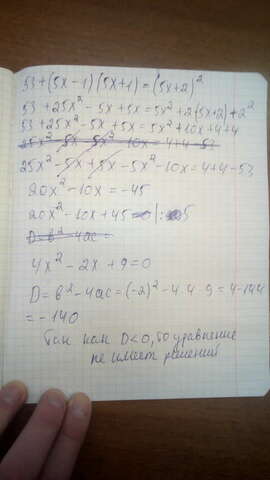 53+(5x-1)(5x+1)=(5x+2)²
53+25x²-5x+5x=5x²+2(5x+2)+2²
53+25x²-5x+5x=5x²+10x+4+4
25x²-5x+5x-5x²-10x=4+4-53
20x²-10x=-45
20x²-10x+45=0|:5
D=b²-4ac=
4x²-2x+9=0
D=b²-4ac=(-2)²-4·4·9=4-144
=-140
Так как D<0, то уравнение
не имеет решений